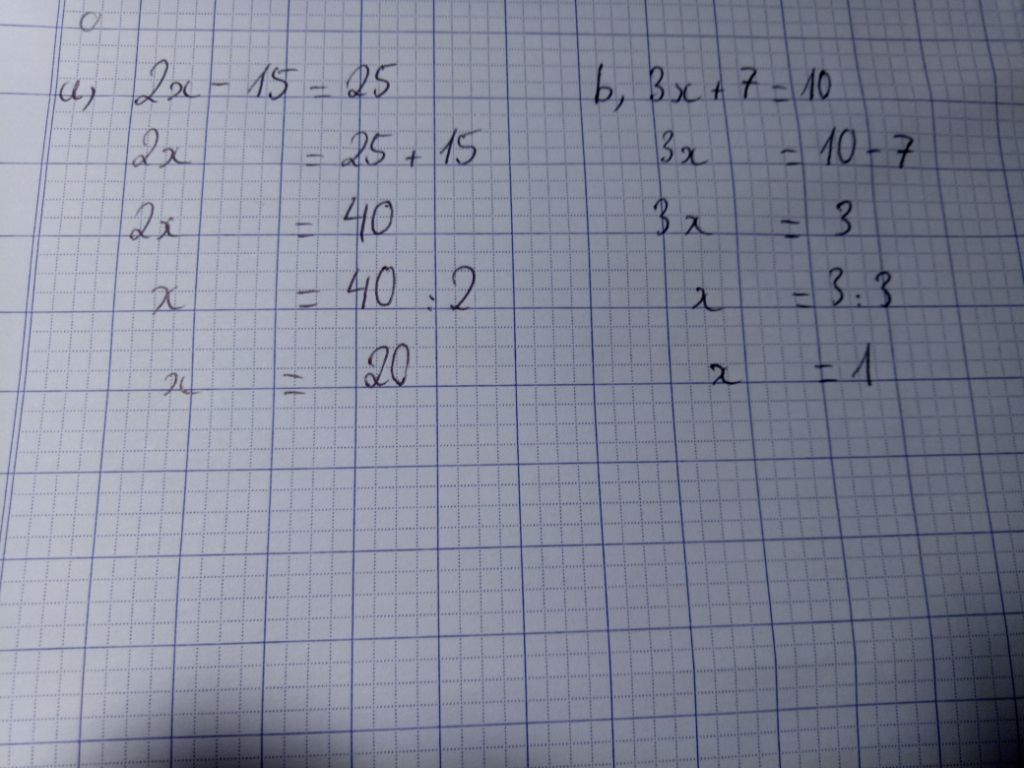 a, 2x - 15 = 25
2x = 25 + 15
2x = 40
x = 40 : 2
x = 20
b, 3x + 7 = 10
3x = 10 - 7
3x = 3
x = 3 : 3
x = 1